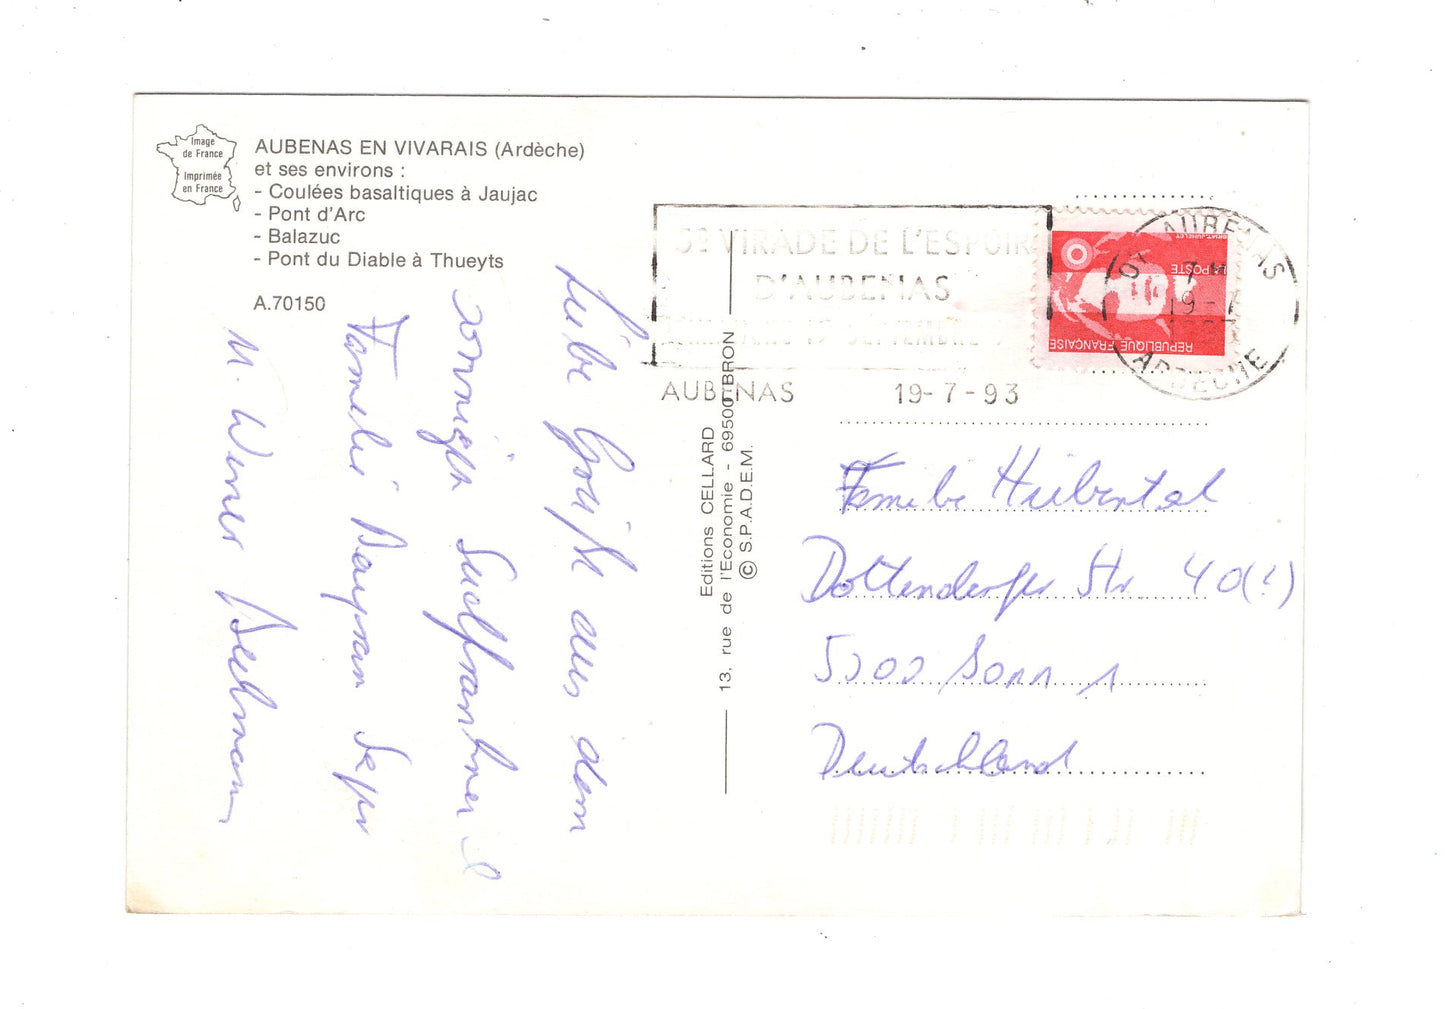 Image
de France
Imprimée
en France
AUBENAS EN VIVARAIS (Ardèche)
et ses environs :
- Coulées basaltiques à Jaujac
- Pont d'Arc
- Balazuc
- Pont du Diable à Thueyts
A.70150
Liebe Grüße aus dem
sonnigen Südfrankreich
Familie
M. Werner
Editions CELLARD
13, rue de l'Economie - 69500 BRON
© S.P.A.D.E.M.
5e VIRADE DE L'ESPOIR
D'AUBENAS
DIMANCHE 19 SEPTEMBRE
AUBENAS 19-7-93
LA POSTE
REPUBLIQUE FRANÇAISE
07 AUBENAS
7 H
19-7
ARDECHE
Familie Hubertal
Dottendorfer Str. 40(!)
5300 Bonn 1
Deutschland